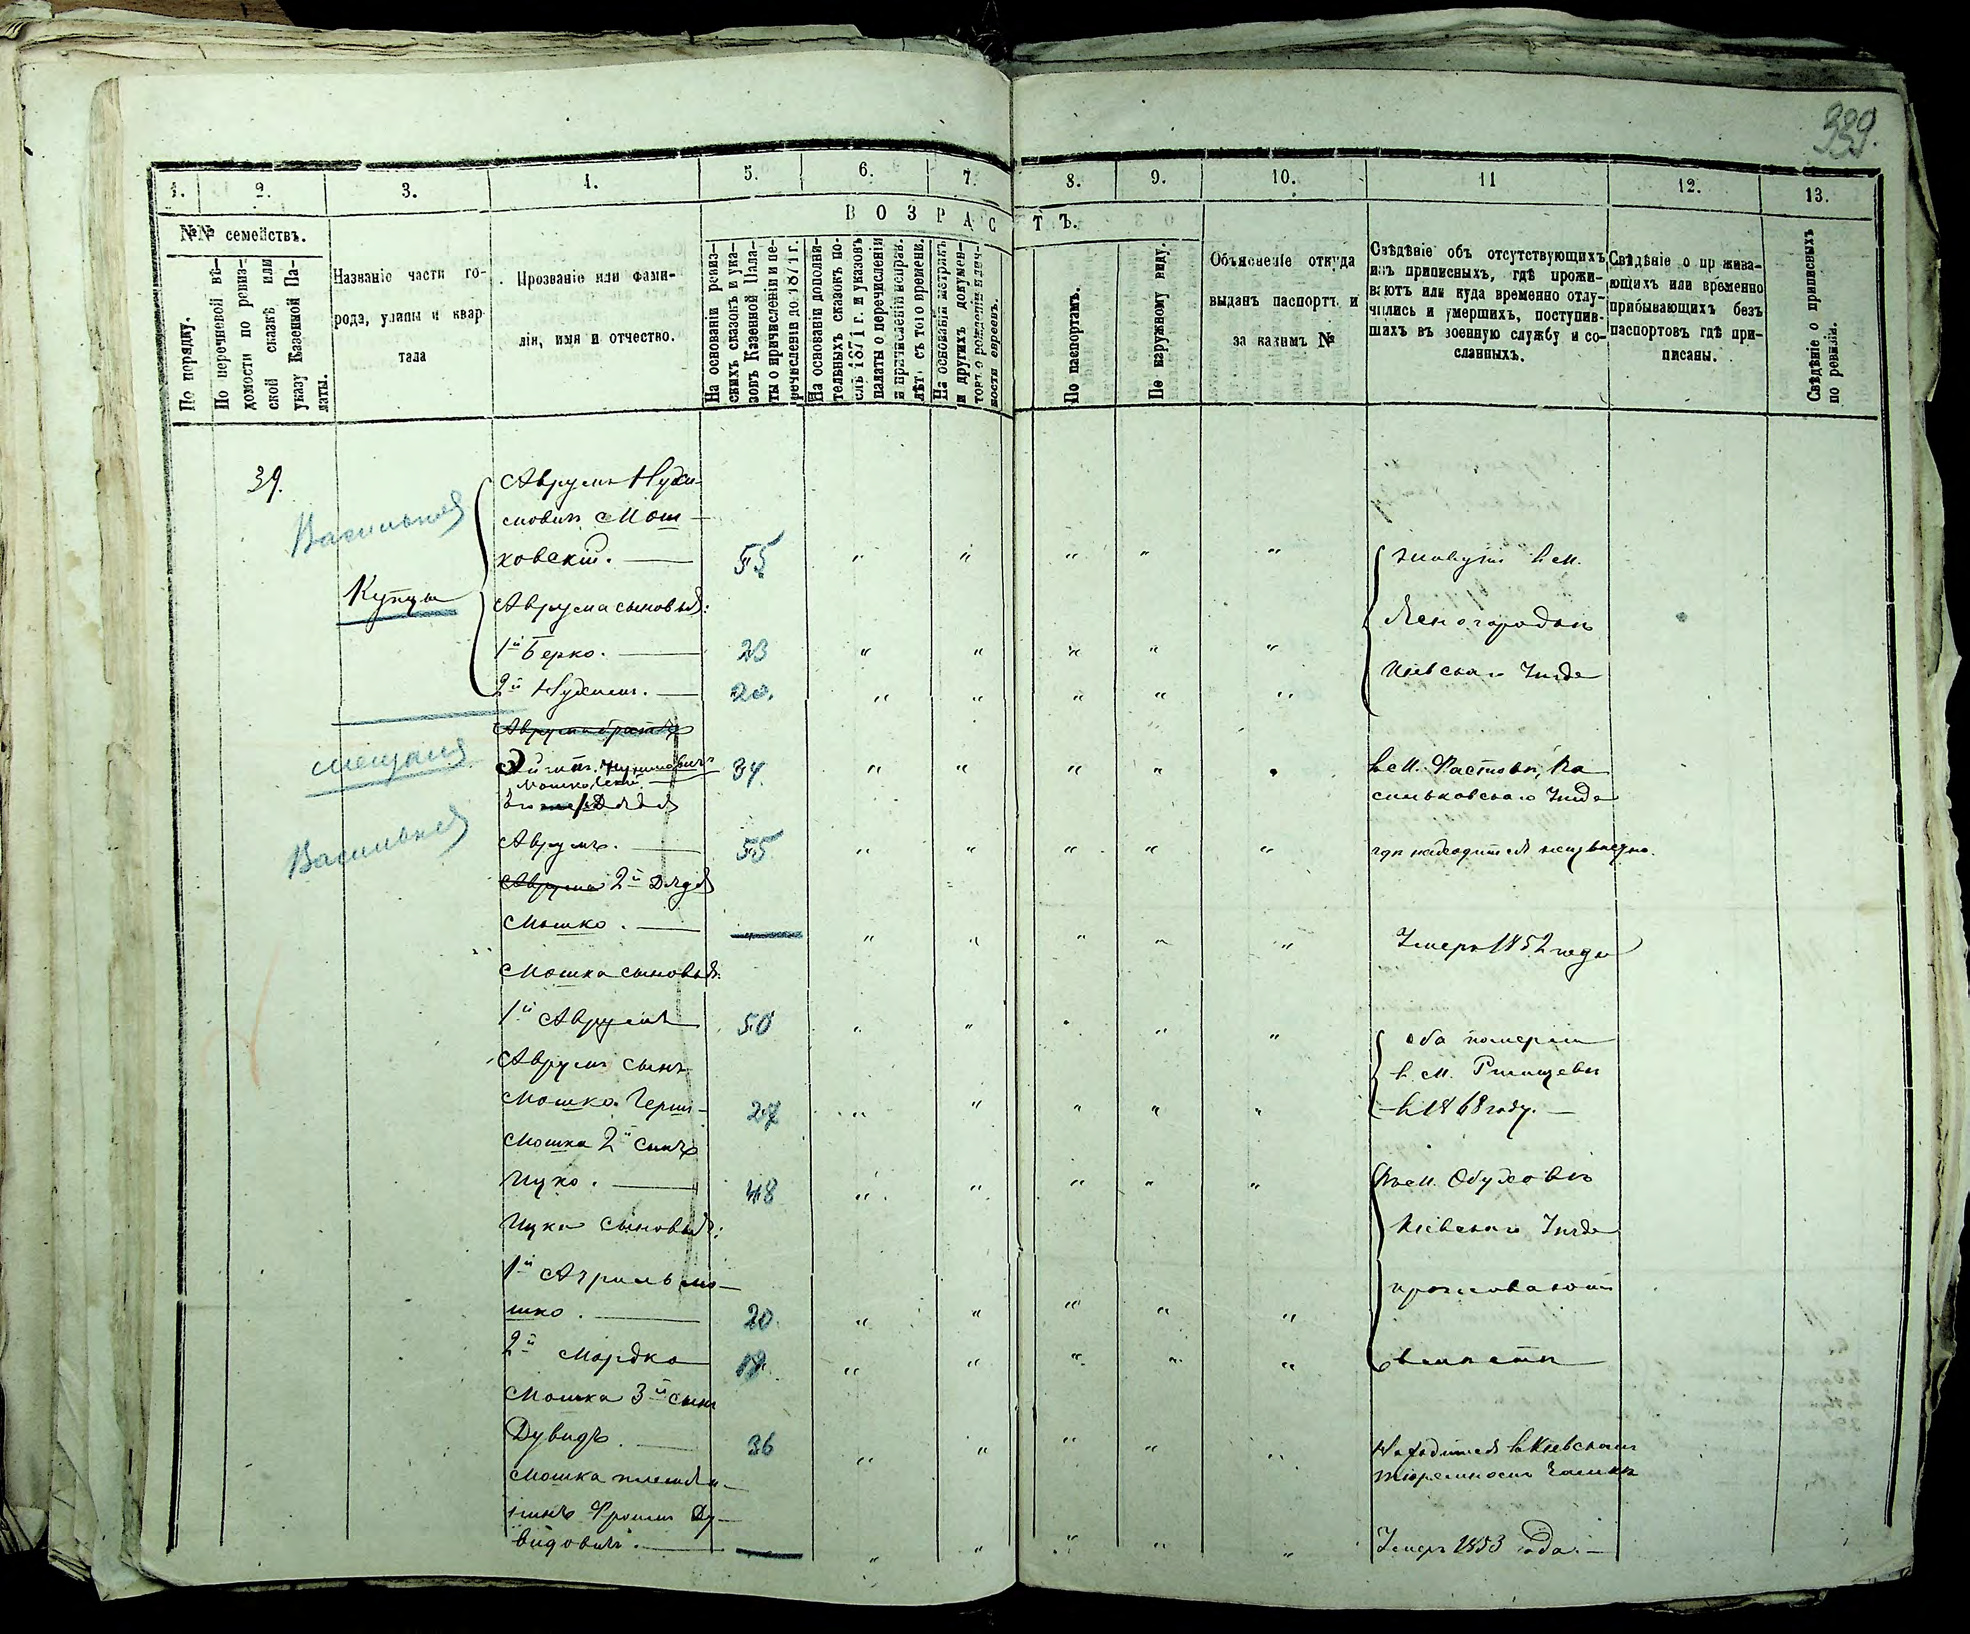 339.
1. 2. 3. 4. 5. 6. 7. 8. 9. 10. 11 12. 13.
№№ семействъ.
По порядку.
По перечневой вѣ-
домости по ревиз-
ской сказкѣ или
указу Казенной Па-
латы.
Названіе части го-
рода, улицы и квар
тала
Прозваніе или фами-
лія, имя и отчество.
ВОЗРАСТЪ.
На основаніи ревиз-
скихъ сказокъ и ука-
зовъ Казенной Пала-
ты о причисленіи и пе-
речисленіи до 1871 г.
На основаніи дополни-
тельныхъ сказокъ по-
слѣ 1871 г. и указовъ
палаты о перечисленіи
и причисленіи исправ.
лѣт. съ того времени.
На основаніи метрикъ
и другихъ докумен-
товъ о рожденіи
ности евреевъ.
По паспортамъ.
По наружному виду.
Объясненіе откуда
выданъ паспортъ и
за какимъ №
Свѣдѣніе объ отсутствующихъ
изъ приписныхъ, гдѣ прожи-
ваютъ или куда временно отлу-
чились и умершихъ, поступив-
шихъ въ военную службу и со-
сланныхъ.
Свѣдѣніе о прожива-
ющихъ или временно
прибывающихъ безъ
паспортовъ гдѣ при-
писаны.
Свѣдѣніе о приписныхъ
по ревизіи.
39.
Аврумъ Нухи-
мовичъ Мош-
ковскій. 55 " " " " "
Купцы
Аврума сыновья:
1й Берко. 23 " " " " "
2й Нухимъ. 20. " " " " "
живутъ в м.
Бѣлогородкѣ
Кіевскаго Уѣзда
Аврума братъ
Нухимовичъ 34. " " " "
Мошковскій
в м. Фастовѣ, Ва
сильковскаго Уѣзда
дядя
Аврумъ. 55 " " " " "
гдѣ находится неизвѣстно.
Аврума 2й дядя
Мошко. " " " " " "
Умеръ 1852 года
Мошка сыновья:
1й Аврумъ 50 " " " "
Аврума сынъ
Мошко Герш- 27 " " " " "
оба померли
в м. Ржищевѣ
в 1868 году.
Мошка 2й сынъ
Ицко. 48 " " " " "
Ицка сыновья:
1й Мо-
шко. 20 " " " " "
2й Мордко 19. " " " " "
Въ м. Обуховѣ
Кіевскаго Уѣзда
проживаютъ
Мошка 3й сынъ
Дувидъ. 36 " " " " "
Находится въ Кіевскомъ
тюремномъ замкѣ
Мошка племян-
никъ Фроимъ Ду-
видовичъ. " " " " "
Умеръ 1853 года.